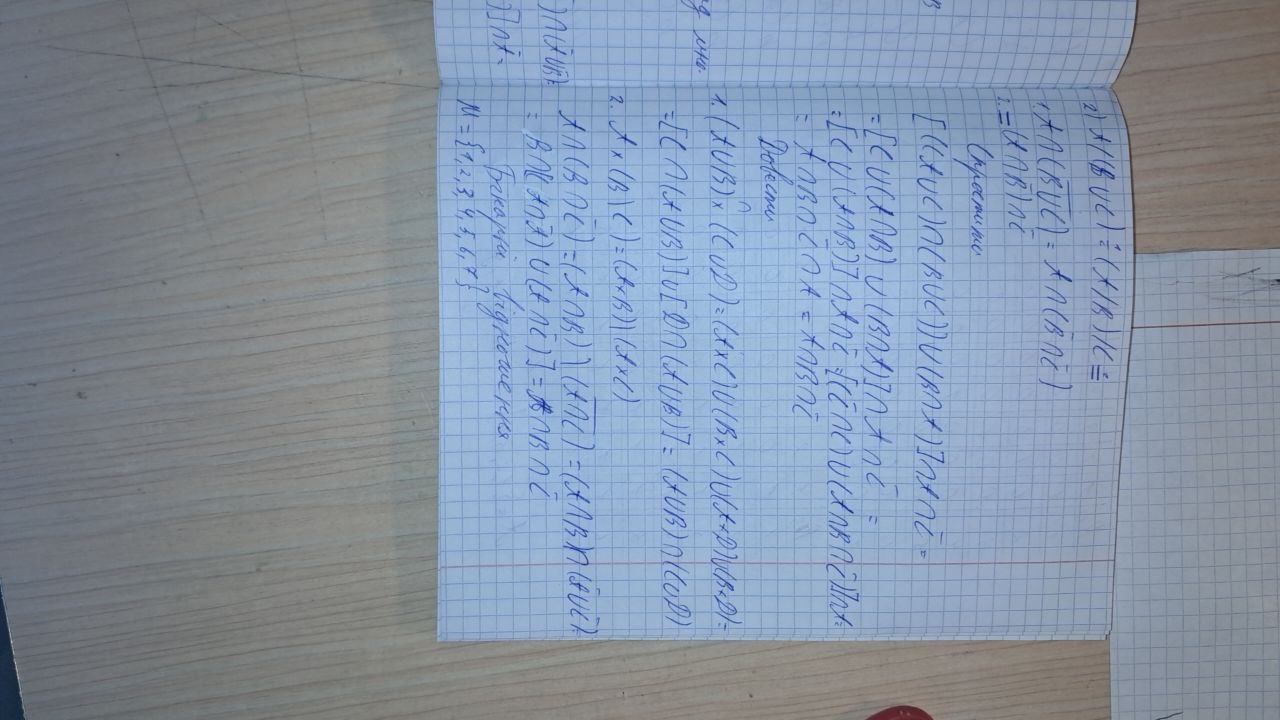 2) A\(B∪C) = (A\B)\C =
1. A∩(B̅∪̅C̅) = A∩(B̄∩C̄)
2. = (A∩B̄)∩C̄
Спростити
[((A∪C)∩(B∪C))∪(B∩A)]∩A∩C̄ =
= [C∪(A∩B)∪(B∩A)]∩A∩C̄ =
= [C∪(A∩B)]∩A∩C̄ = [(C∩C̄)∪(A∩B∩C̄)]∩A =
= A∩B∩C̄∩A = A∩B∩C̄
Довести
1. (A∪B)×(C∪D) = (A×C)∪(B×C)∪(A×D)∪(B×D) =
= [C∩(A∪B)]∪[D∩(A∪B)] = (A∪B)∩(C∪D)
2. A×(B\C) = (A×B)\(A×C)
A∩(B∩C̄) = (A∩B)∩(A̅∩̅C̅) = (A∩B)∩(Ā∪C̄) =
= B∩[(A∩Ā)∪(A∩C̄)] = A∩B∩C̄
Бінарні відношення
M = {1, 2, 3, 4, 5, 6, 7}
)∩(A∪B)
)]∩Ā =